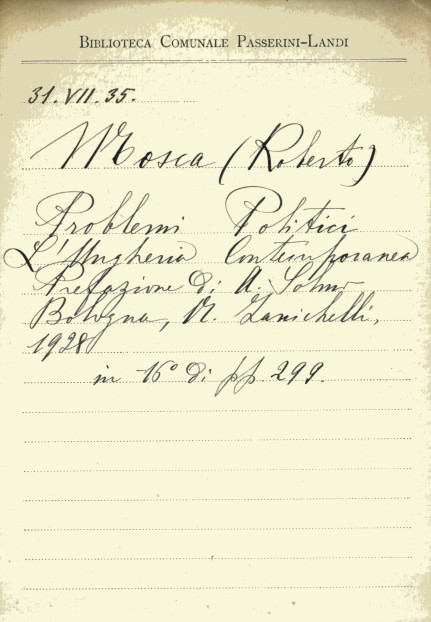 BIBLIOTECA COMUNALE PASSERINI-LANDI
31.VII.35.
Mosca (Roberto)
Problemi Politici
L'Ungheria Contemporanea
Prefazione di A. Solmi
Bologna, N. Zanichelli,
1928
in 16° di pp 299.